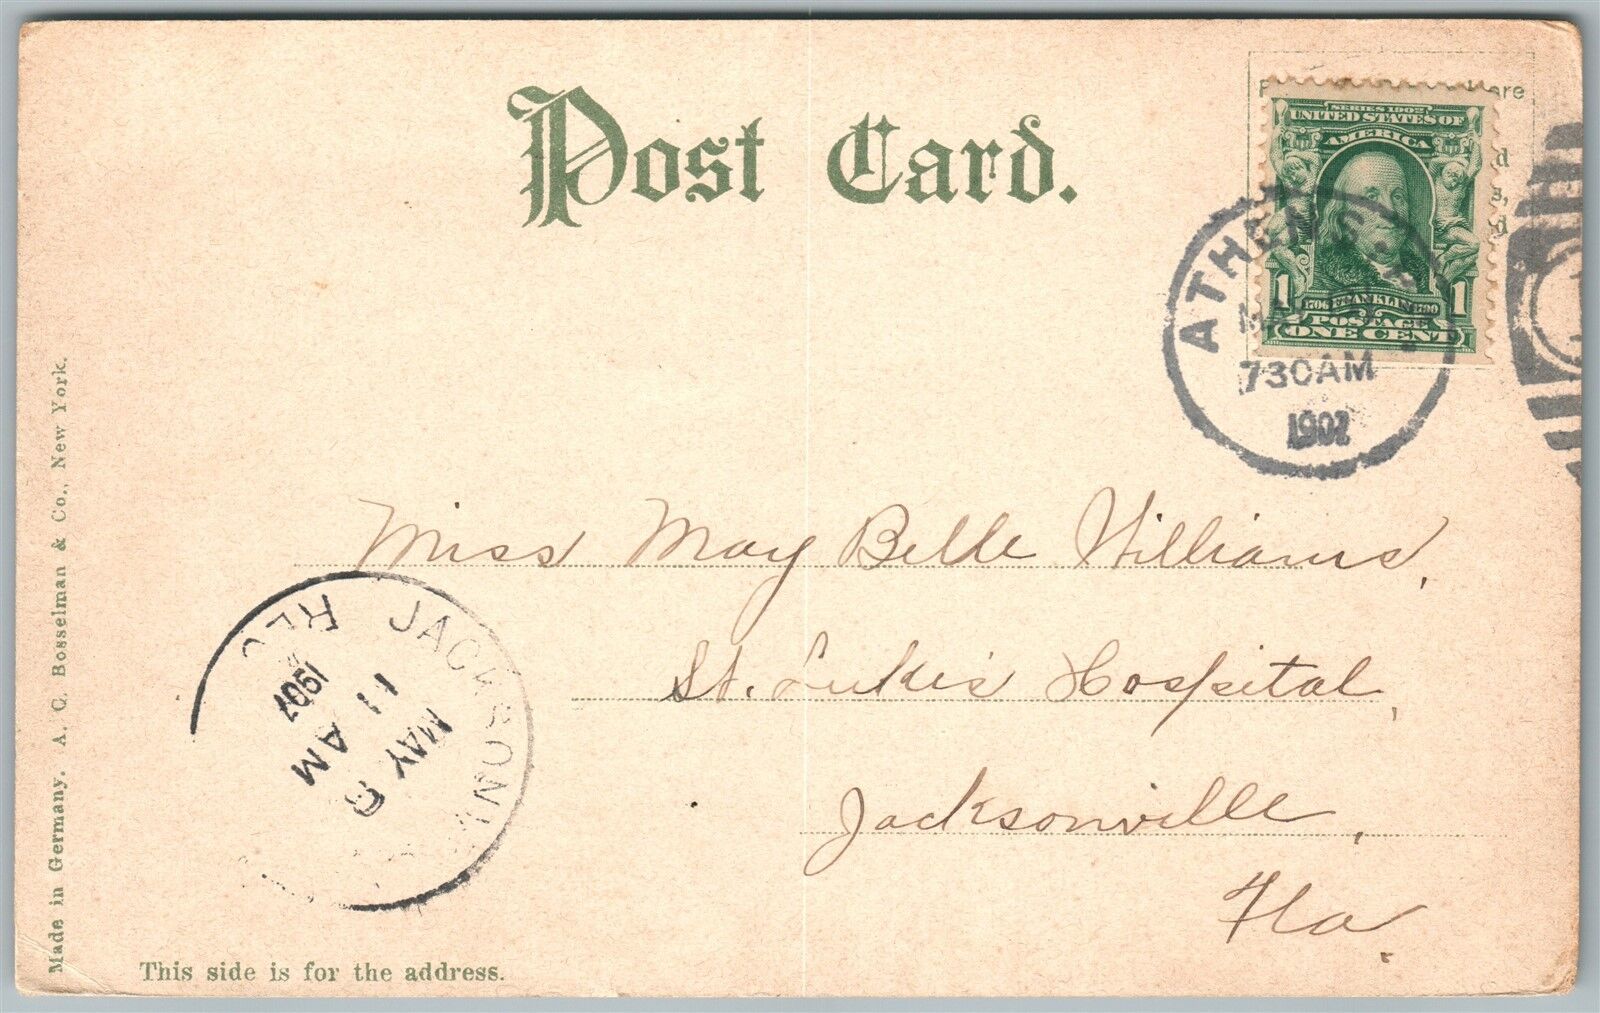 Post Card.
SERIES 1902
UNITED STATES OF
AMERICA
1 1706 FRANKLIN 1790 1
POSTAGE
ONE CENT
ATHENS
730AM
1907
Miss May Belle Williams,
St. Luke's Hospital,
Jacksonville,
Fla.
JACKSONV
REC
MAY 8
11 AM
1907
Made in Germany. A. C. Bosselman & Co., New York.
This side is for the address.